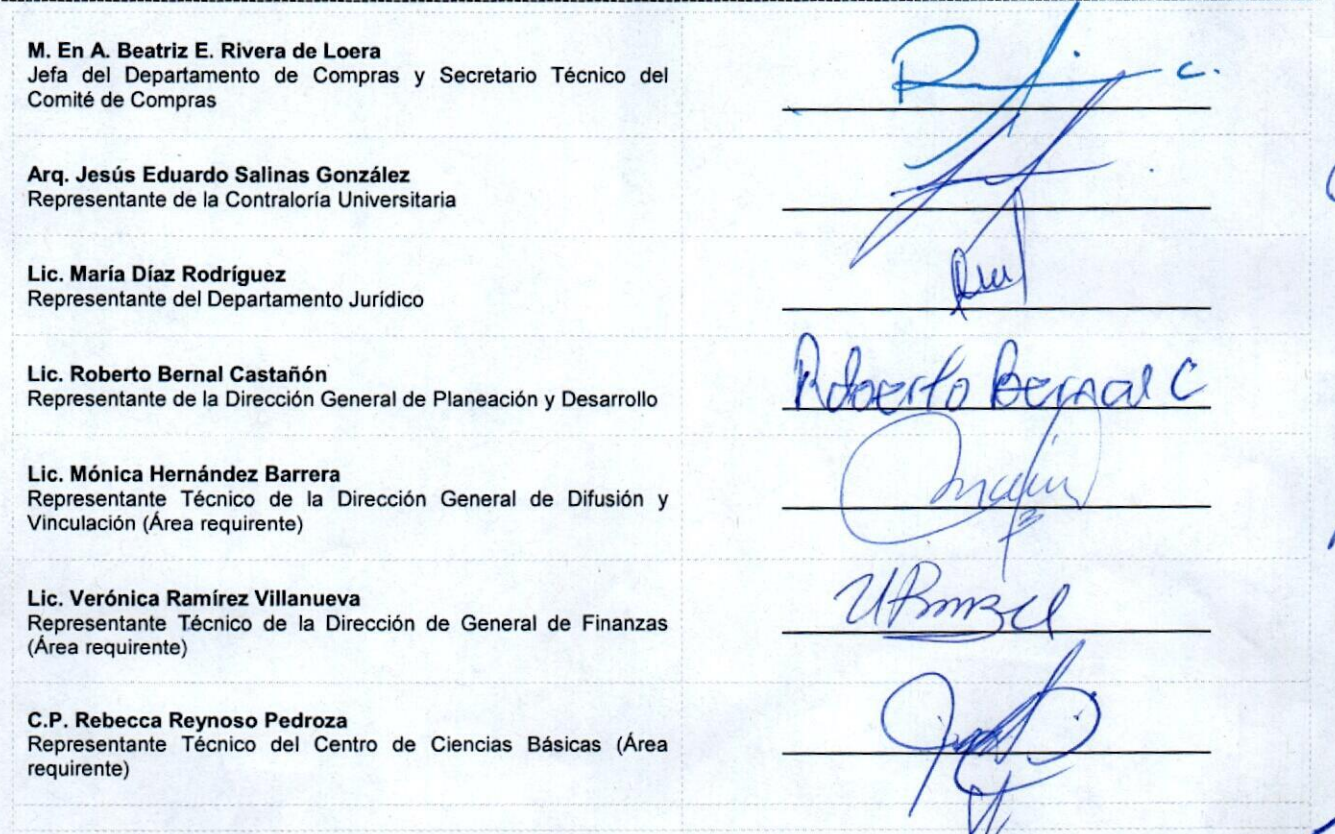 M. En A. Beatriz E. Rivera de Loera
Jefa del Departamento de Compras y Secretario Técnico del
Comité de Compras
Arq. Jesús Eduardo Salinas González
Representante de la Contraloría Universitaria
Lic. María Díaz Rodríguez
Representante del Departamento Jurídico
Lic. Roberto Bernal Castañón
Representante de la Dirección General de Planeación y Desarrollo
Roberto Bernal C
Lic. Mónica Hernández Barrera
Representante Técnico de la Dirección General de Difusión y
Vinculación (Área requirente)
Lic. Verónica Ramírez Villanueva
Representante Técnico de la Dirección de General de Finanzas
(Área requirente)
C.P. Rebecca Reynoso Pedroza
Representante Técnico del Centro de Ciencias Básicas (Área
requirente)